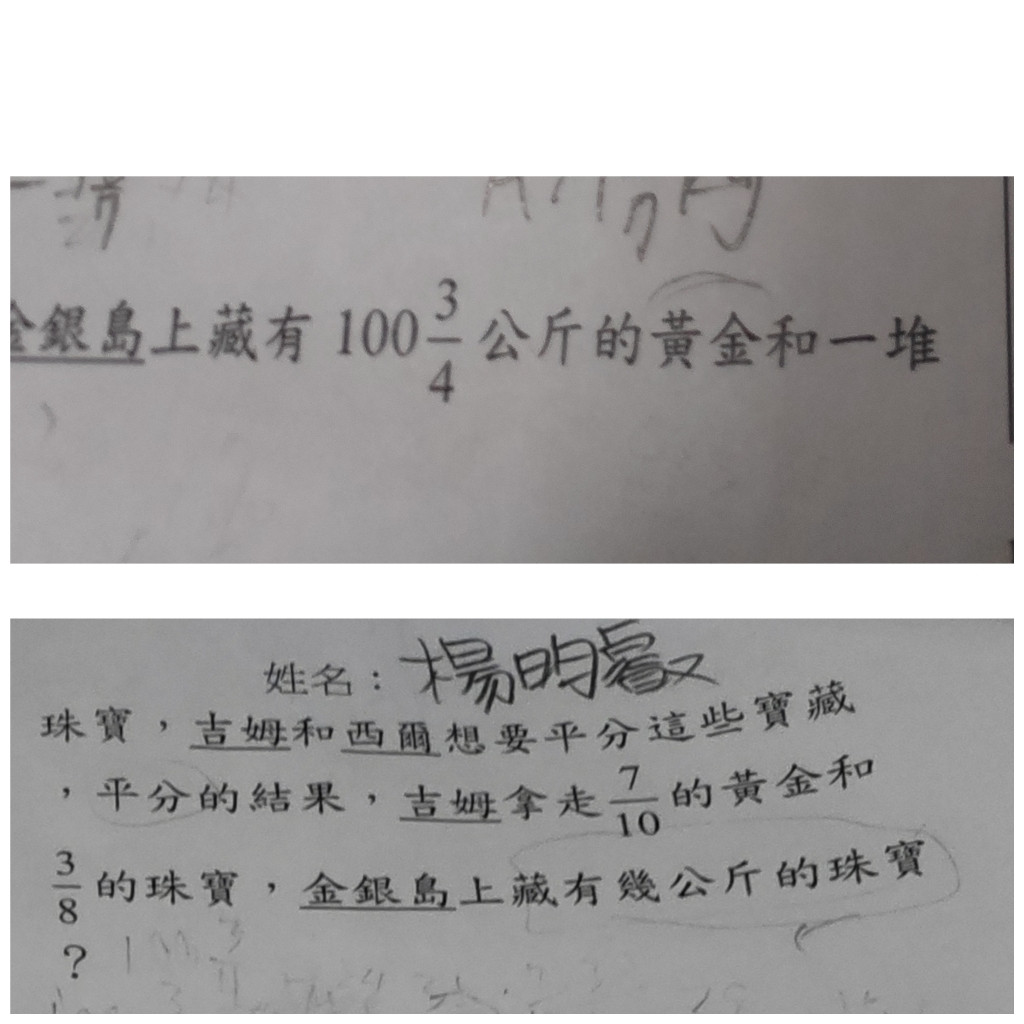 金銀島上藏有 100 3/4 公斤的黃金和一堆
姓名：楊明叡
珠寶，吉姆和西爾想要平分這些寶藏
，平分的結果，吉姆拿走 7/10 的黃金和
3/8 的珠寶，金銀島上藏有幾公斤的珠寶
？